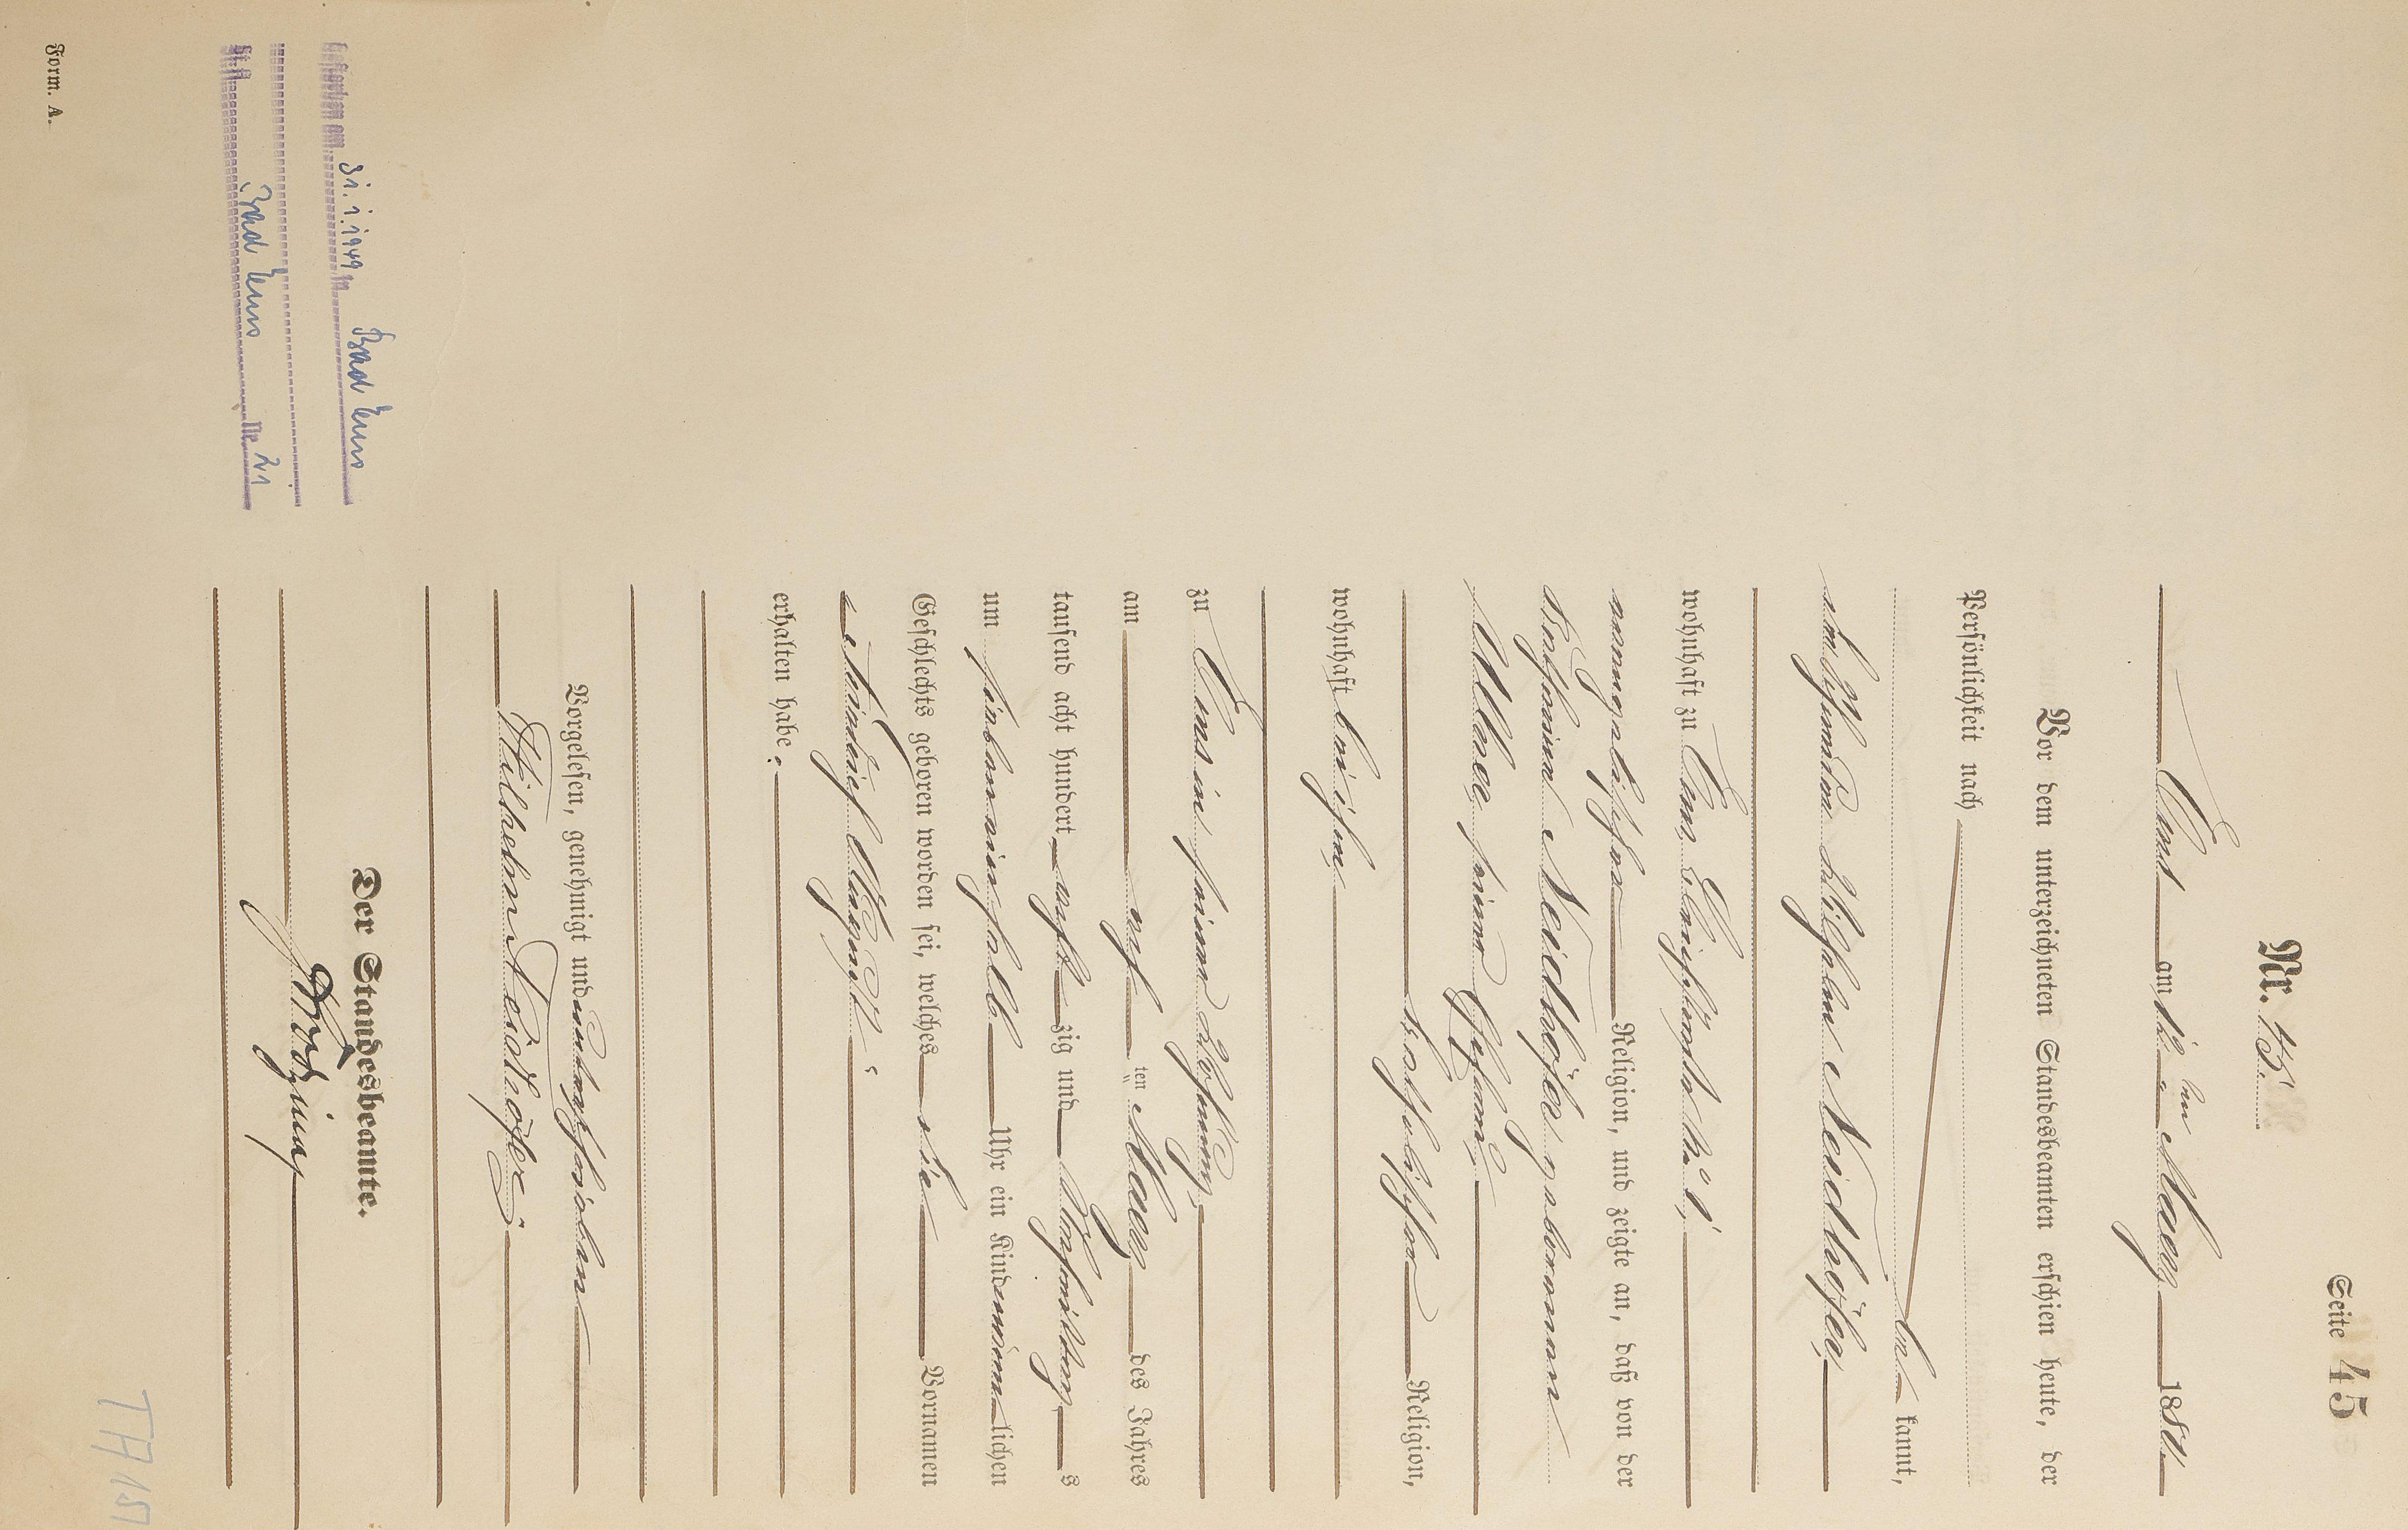 Seite 45
Nr. 45.
Ems am 12ten Maerz 1881.
Vor dem unterzeichneten Standesbeamten erschien heute, der
Persönlichkeit nach
kannt,
Wilhelm Neidhöfer,
wohnhaft zu Ems,
evangelischer Religion, und zeigte an, daß von der
Neidhöfer geborenen
seiner Ehefrau,
katholischer Religion,
wohnhaft bei ihm,
zu Ems in seiner Wohnung,
am acht ten Maerz des Jahres
tausend acht hundert achtzig und eins
um sieben ein halb Uhr ein Kind männlichen
Geschlechts geboren worden sei, welches die Vornamen
Heinrich August
erhalten habe.
Vorgelesen, genehmigt und unterschrieben
Wilhelm Neidhöfer
Der Standesbeamte.
Gestorben am 31.1.1949 in Bad Ems
St.A. Bad Ems Nr. 21
Form. A.